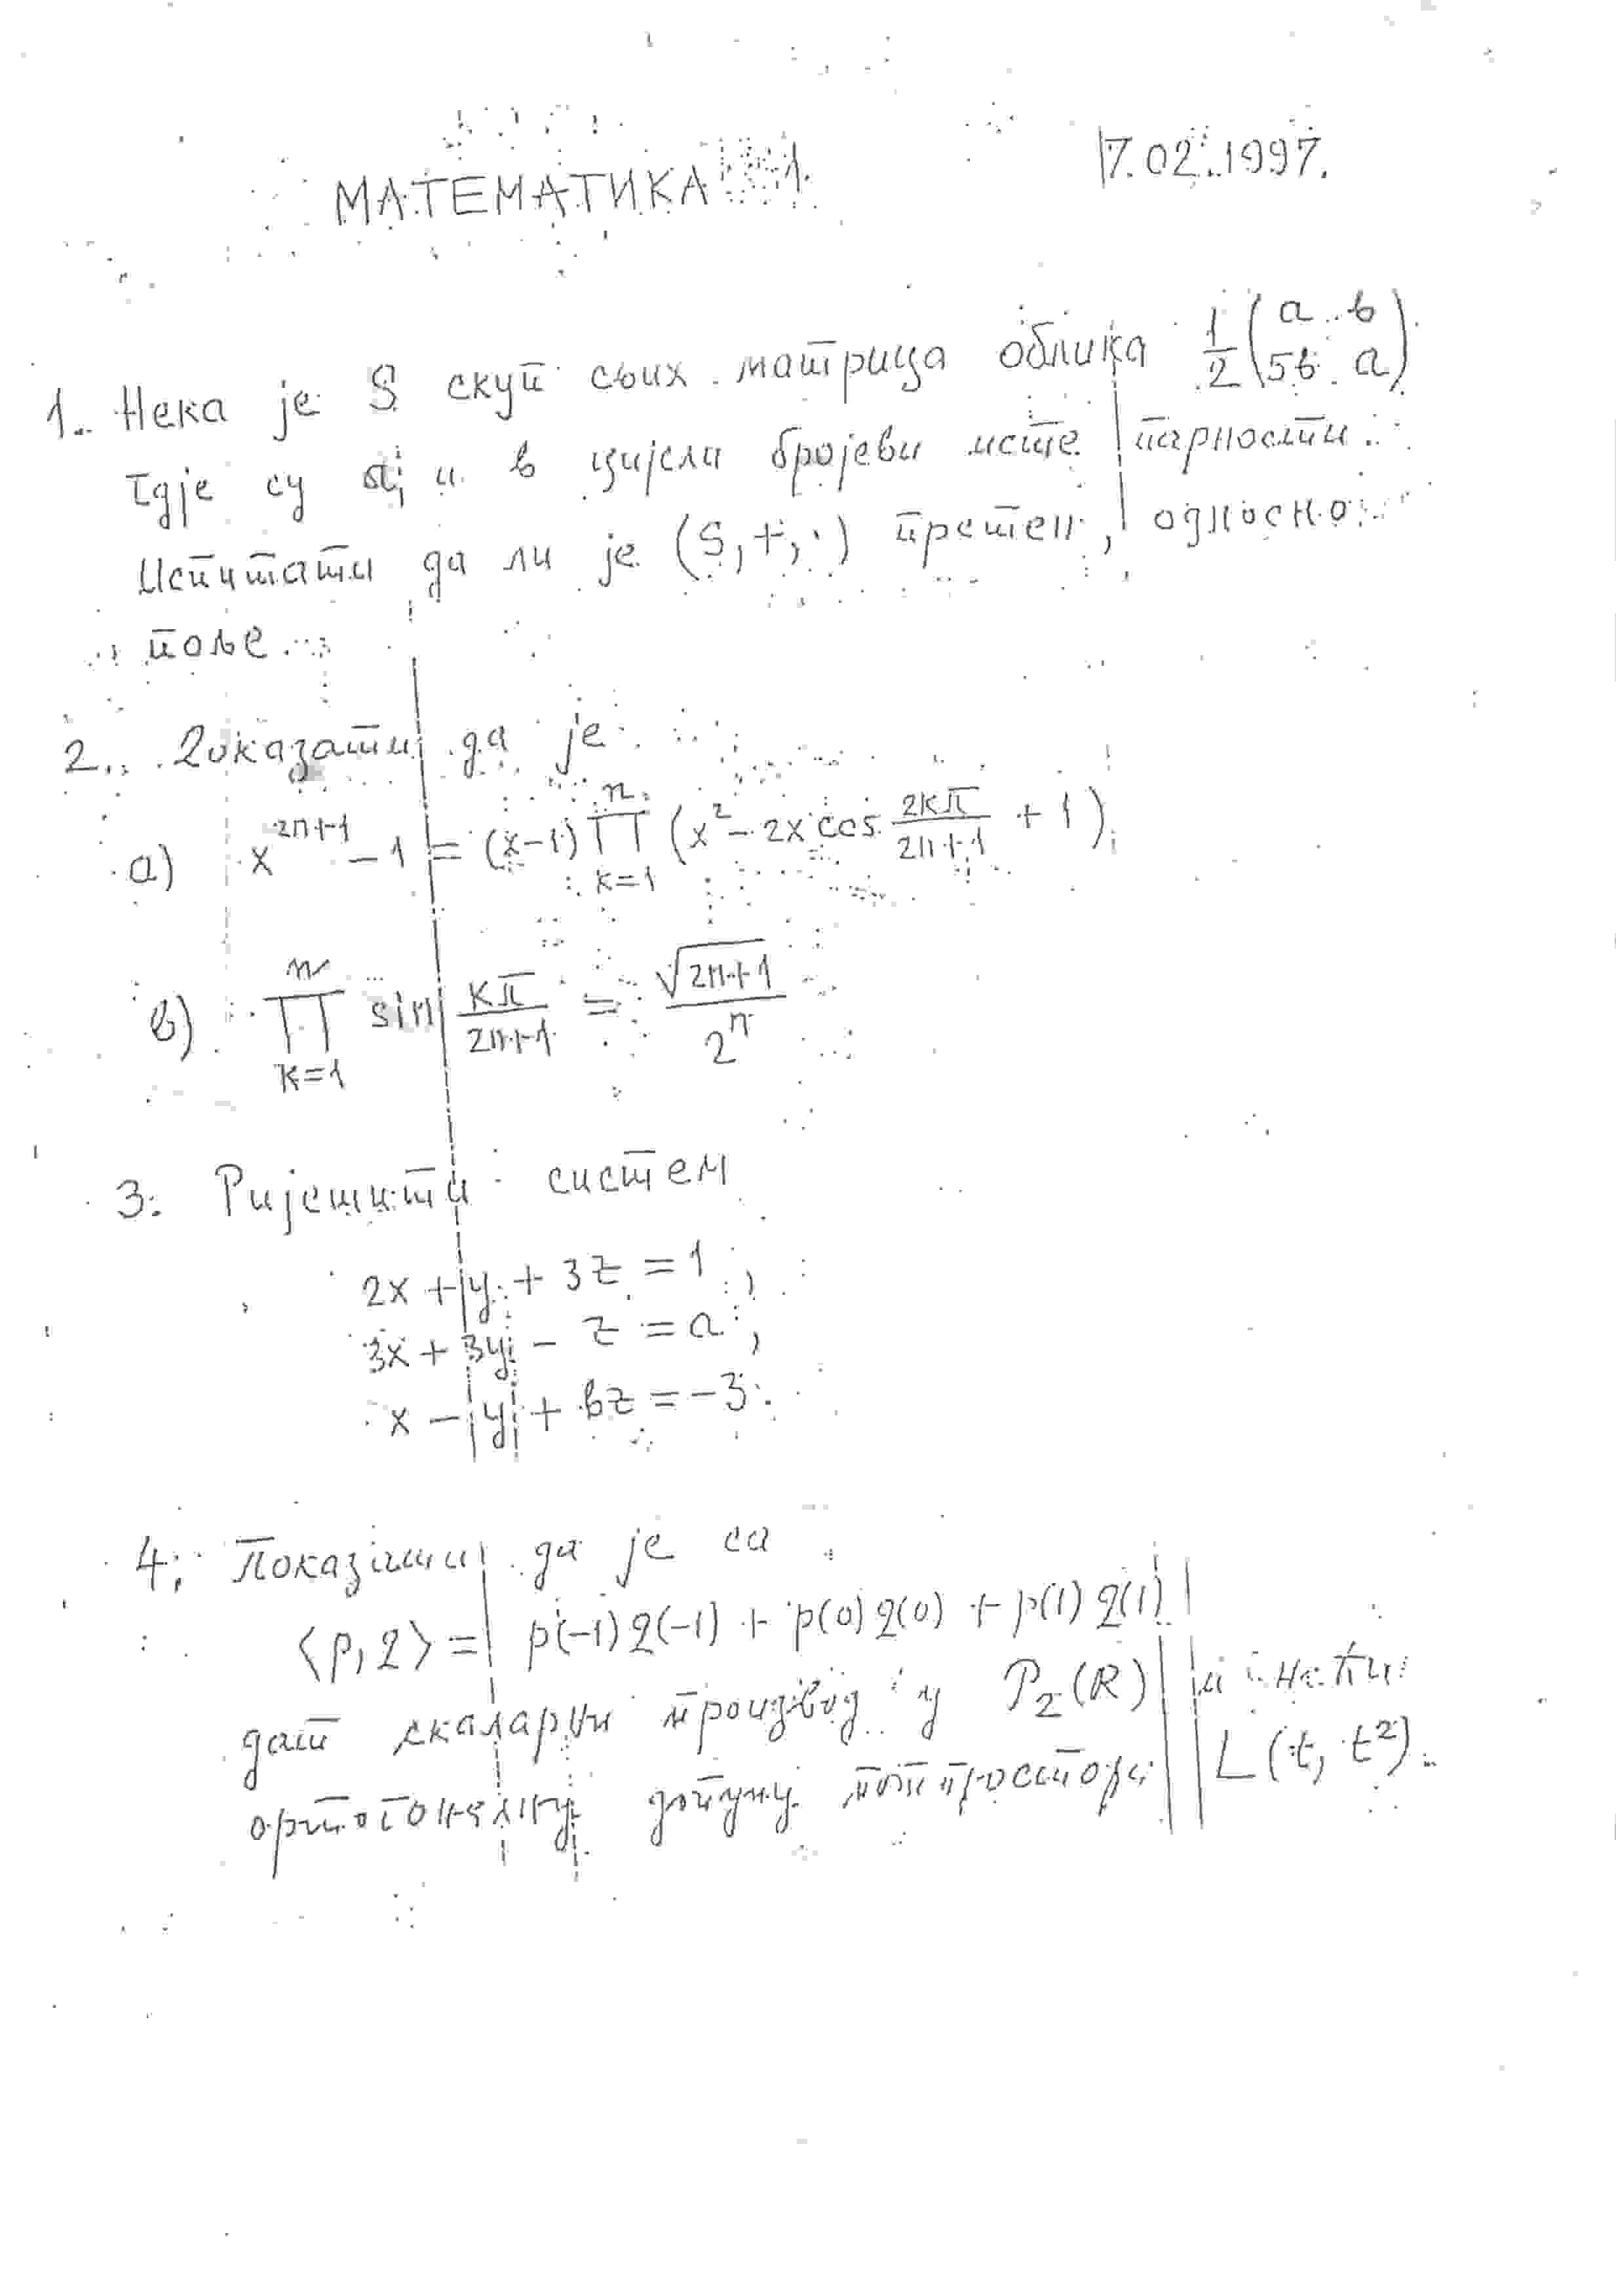 МАТЕМАТИКА 1.
17.02.1997.
1. Нека је S скуп свих матрица облика 1/2 (a в; 5в a)
гдје су a и в цијели бројеви исте парности.
Испитати да ли је (S,+,·) прстен, односно
поље.
2. Доказати да је
а) x^(2n+1) - 1 = (x-1) ∏_(k=1)^n (x² - 2x cos 2kπ/(2n+1) + 1)
в) ∏_(k=1)^n sin kπ/(2n+1) = √(2n+1)/2^n
3. Ријешити систем
2x + y + 3z = 1,
3x + 3y - z = a,
x - y + вz = -3.
4. Показати да је са
⟨p,q⟩ = p(-1)q(-1) + p(0)q(0) + p(1)q(1)
дат скаларни производ у P₂(R) и наћи
ортогоналну допуну потпростора L(t, t²).